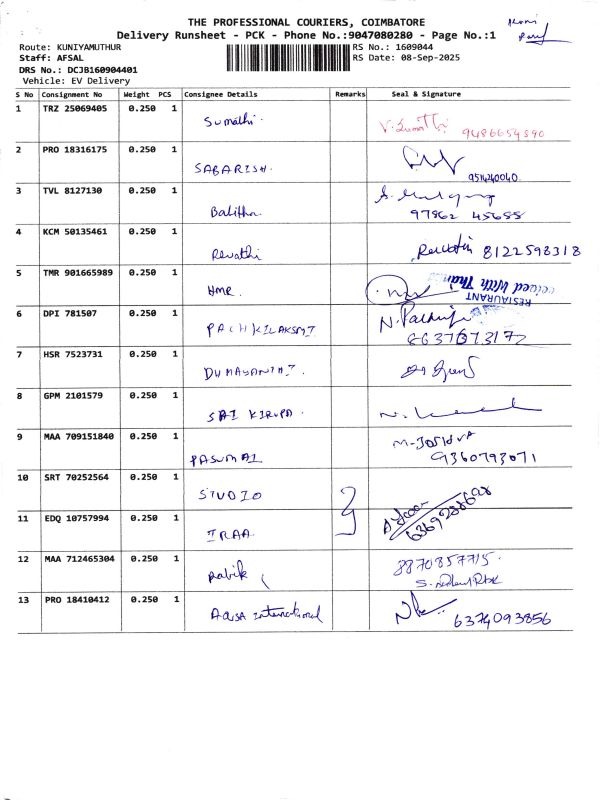 THE PROFESSIONAL COURIERS, COIMBATORE
Delivery Runsheet - PCK - Phone No.:9047080280 - Page No.:1
Route: KUNIYAMUTHUR RS No.: 1609044
Staff: AFSAL RS Date: 08-Sep-2025
DRS No.: DCJB160904401
Vehicle: EV Delivery
S No Consignment No Weight PCS Consignee Details Remarks Seal & Signature
1 TRZ 25069405 0.250 1 Sumathi. V. Sumathi 9486654890
2 PRO 18316175 0.250 1 SABARISH. 9514240040
3 TVL 8127130 0.250 1 Balitha. 97862 45655
4 KCM 50135461 0.250 1 Revathi Revathi 8122598318
5 TMR 901665989 0.250 1 HMR. ceived With Than RESTAURANT
6 DPI 781507 0.250 1 N. 8637673172
7 HSR 7523731 0.250 1 DUMAYANTHI.
8 GPM 2101579 0.250 1 SAI KIRUPA.
9 MAA 709151840 0.250 1 PASUMAI 9360793071
10 SRT 70252564 0.250 1 STUDIO
11 EDQ 10757994 0.250 1 IRAA.
12 MAA 712465304 0.250 1 Rabik 8870857715.
13 PRO 18410412 0.250 1 International 6374093856